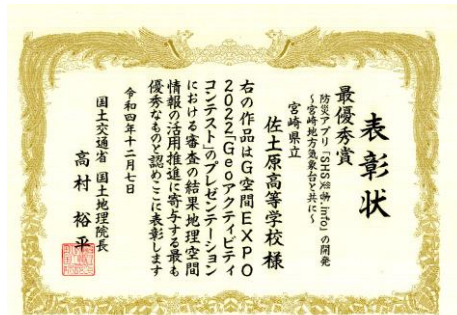 表彰状
最優秀賞
防災アプリ「SHS災害.info」の開発
~宮崎地方気象台と共に~
宮崎県立
佐土原高等学校様
右の作品はG空間EXPO
2022「Geoアクティビティ
コンテスト」のプレゼンテーション
における審査の結果地理空間
情報の活用推進に寄与する最も
優秀なものと認めここに表彰します
令和四年十二月七日
国土交通省 国土地理院長
高村裕平